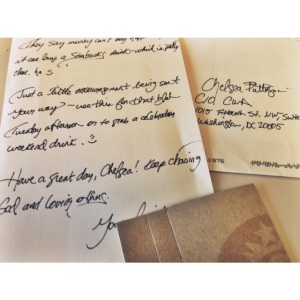 They say money can't buy
it can buy a Starbucks drink - which is pretty
close to :)
Just a little encouragement being sent
your way - use this for that blah
Tuesday afternoon or to grab a celebratory
weekend drink. :)
Have a great day, Chelsea! Keep chasing
God and loving others.
Chelsea
C/O CWA
1015 Fifteenth St. NW, Suite
Washington, DC 20005